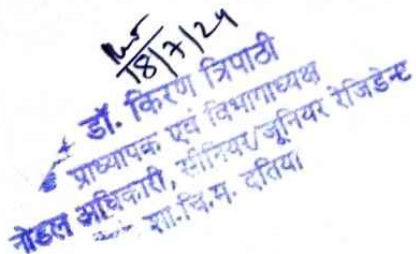 18/7/24
डॉ. किरण त्रिपाठी
प्राध्यापक एवं विभागाध्यक्ष
नोडल अधिकारी, सीनियर/जूनियर रेजिडेन्ट
शा.चि.म. दतिया